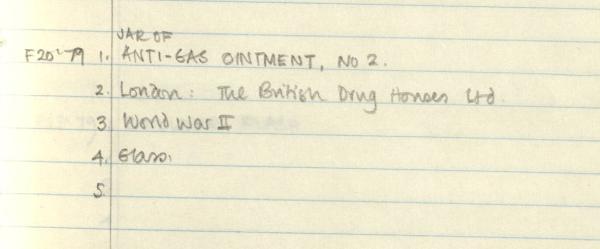 JAR OF
F20'79 1. ANTI-GAS OINTMENT, NO 2.
2. London: The British Drug Houses Ltd.
3. World War II
4. Glass.
5.